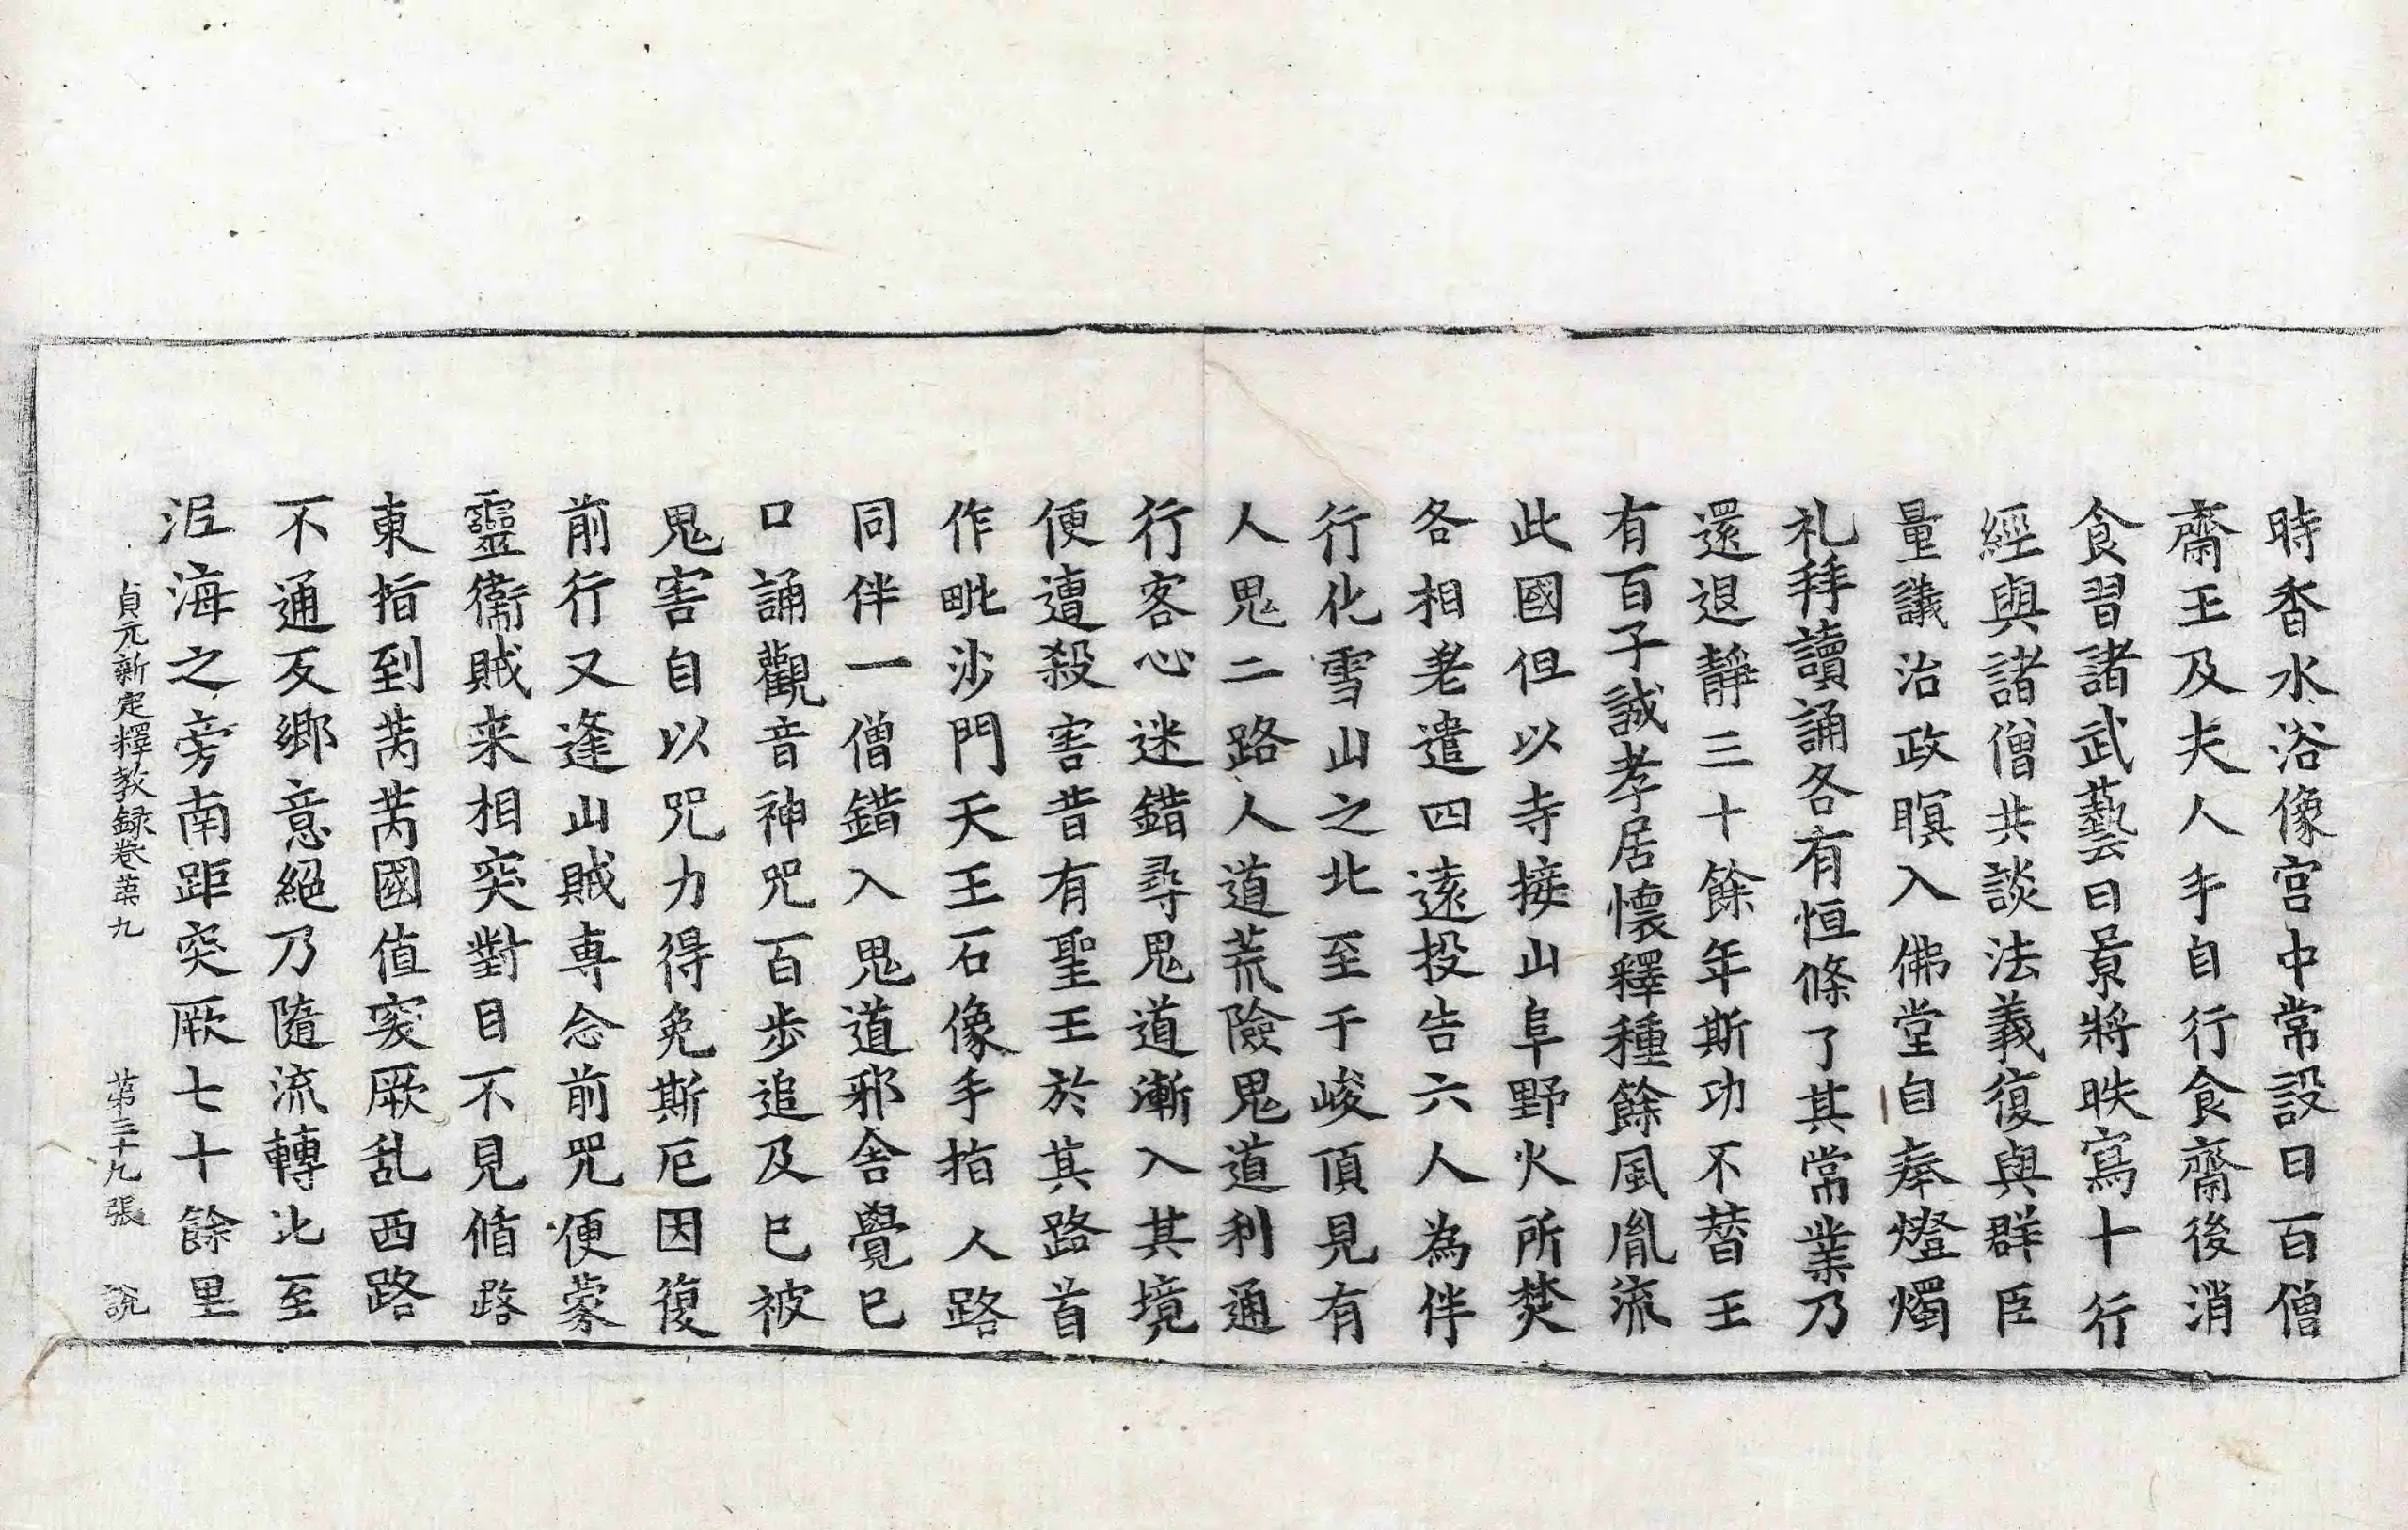 時香水浴像宮中常設日百僧
齋王及夫人手自行食齋後消
食習諸武藝日景將昳寫十行
經與諸僧共談法義復與群臣
量議治政暝入佛堂自奉燈燭
礼拜讀誦各有恒條了其常業乃
還退靜三十餘年斯功不替王
有百子誠孝居懷釋種餘風胤流
此國但以寺接山阜野火所焚
各相差遣四遠投告六人為伴
行化雪山之北至于峻頂見有
人鬼二路人道荒險鬼道利通
行客心迷錯尋鬼道漸入其境
便遭殺害昔有聖王於其路首
作毗沙門天王石像手指人路
同伴一僧錯入鬼道邪舍覺已
口誦觀音神咒百步追及已被
鬼害自以咒力得免斯厄因復
前行又逢山賊専念前咒便蒙
靈衞賊来相突對目不見脩路
東指到芮芮國值突厥乱西路
不通反鄉意絕乃隨流轉北至
泥海之旁南距突厥七十餘里
貞元新定釋教錄卷苐九 苐三十九張 說